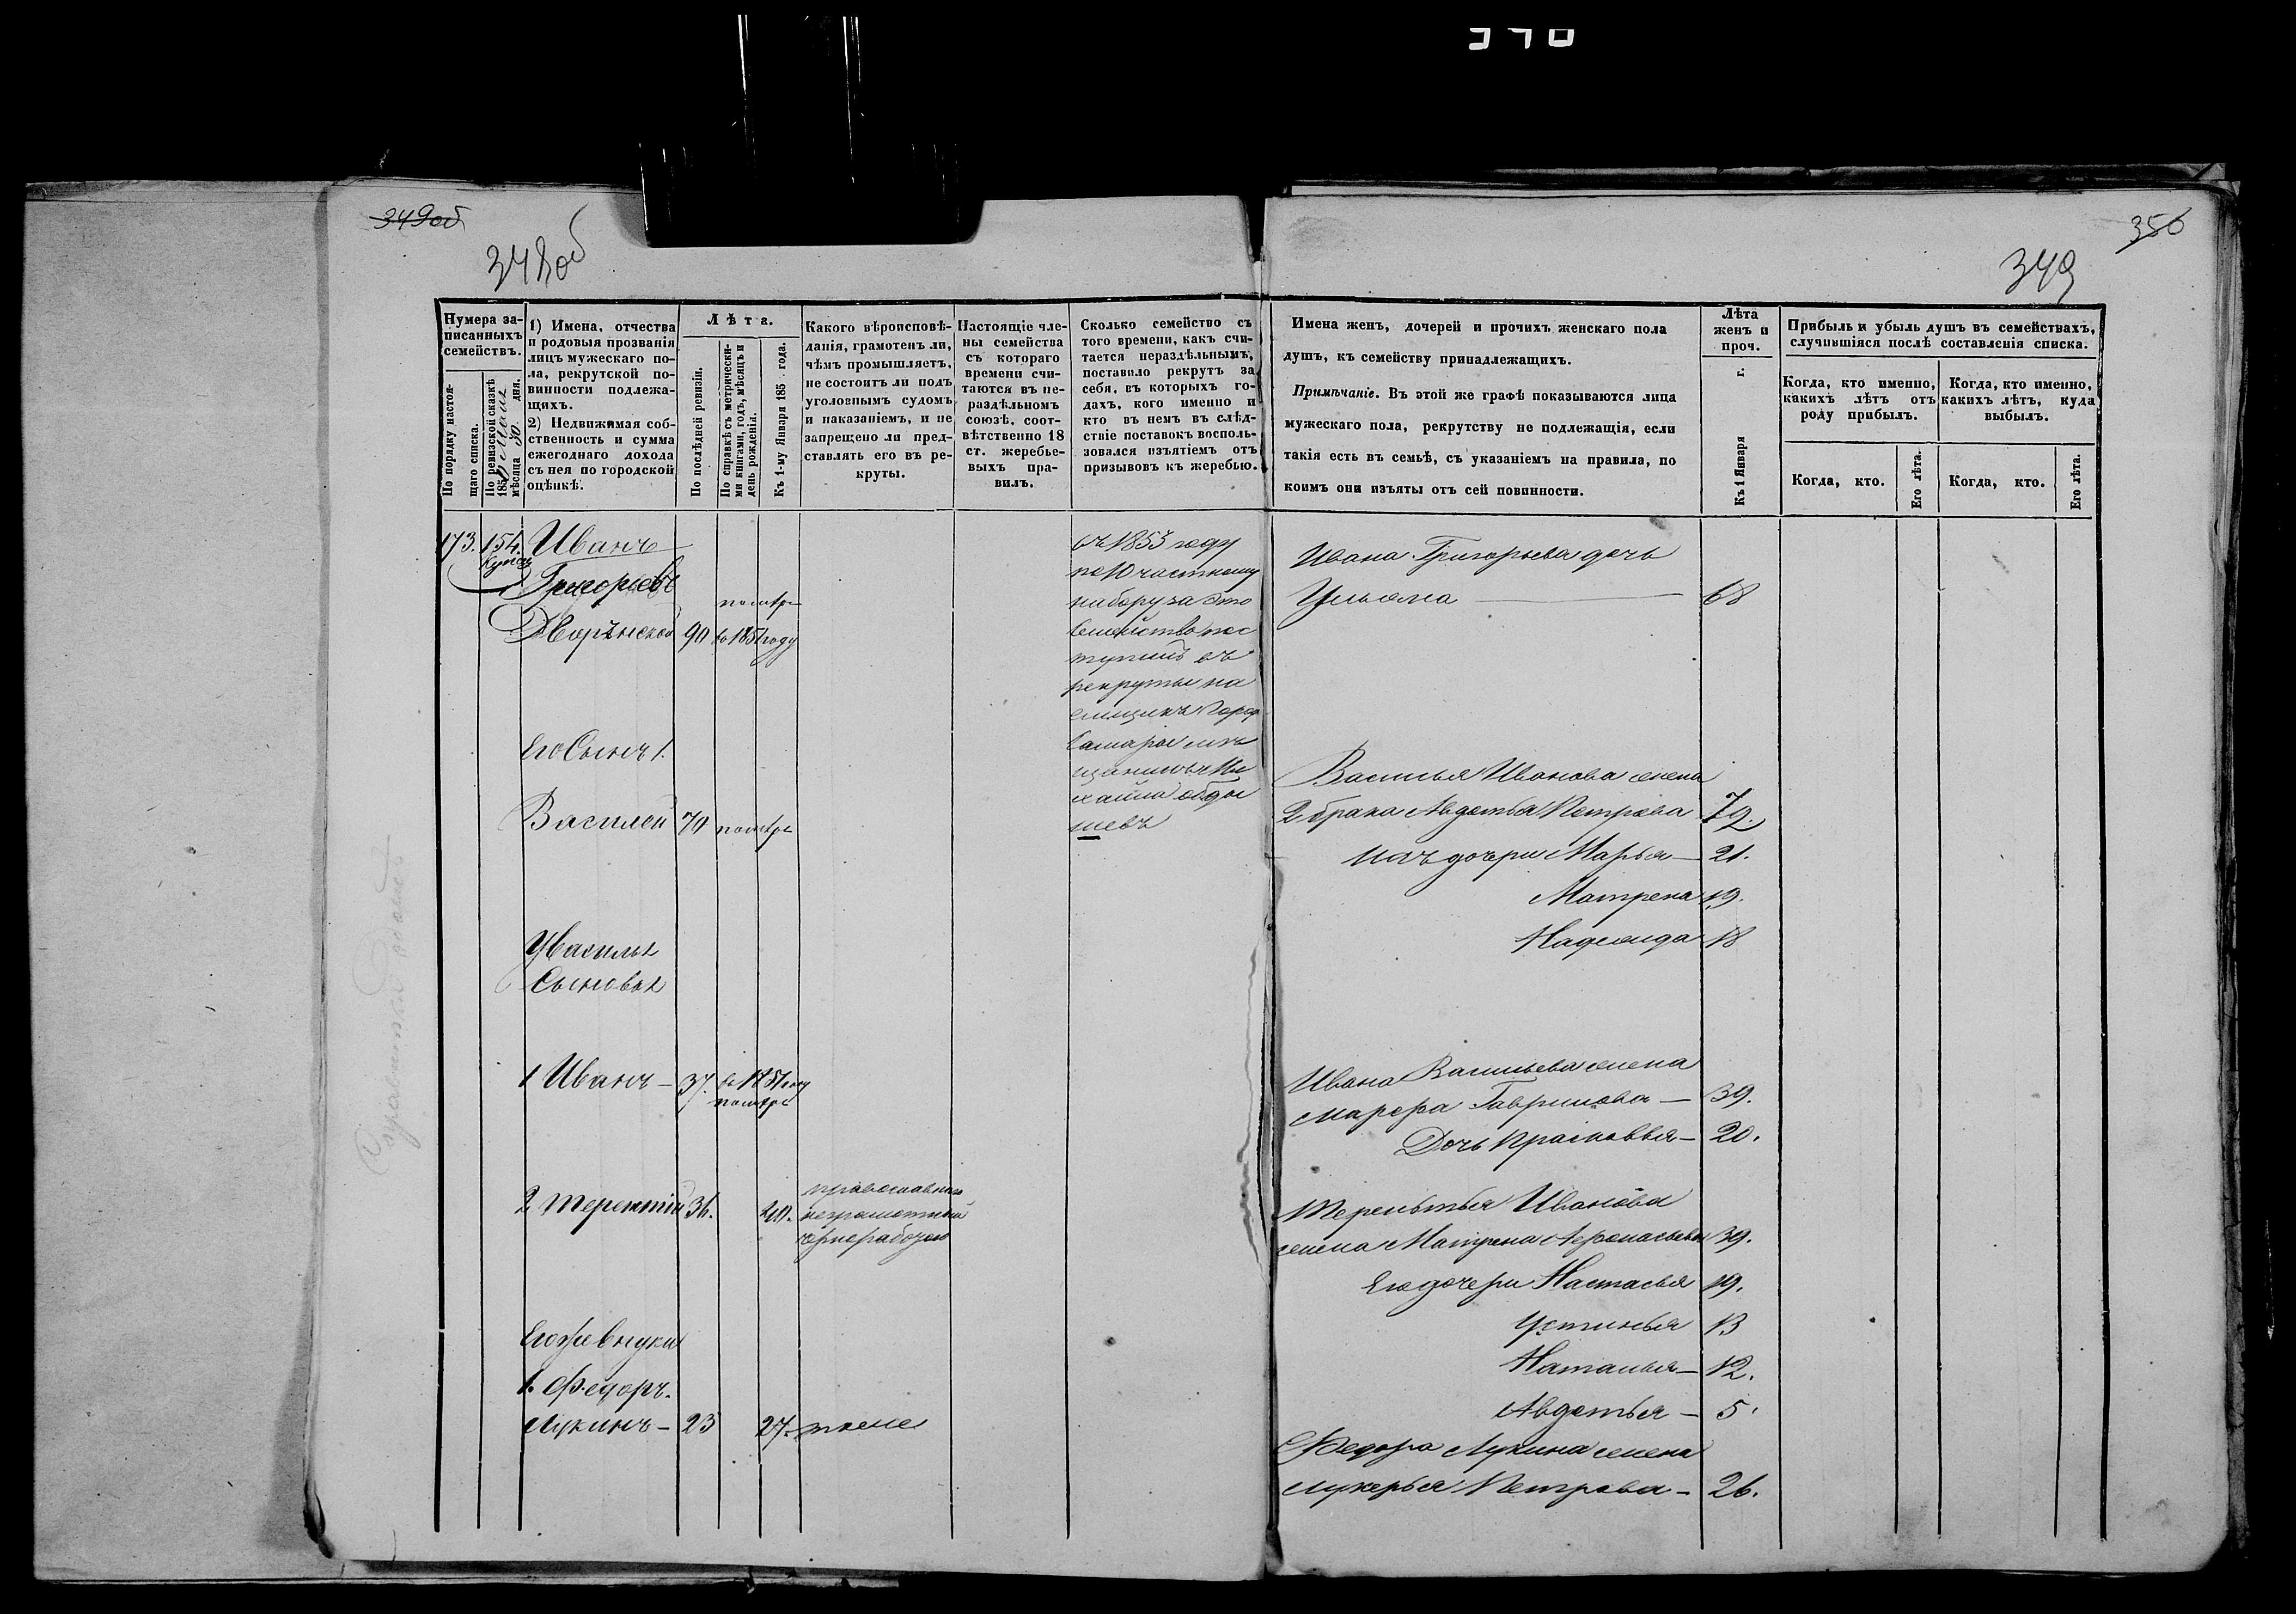 349об
348об
Нумера записанныхъ семействъ.
По порядку настоящаго списка.
По ревизской сказкѣ 185 мѣсяца 30 дня.
1) Имена, отчества и родовыя прозванія лицъ мужескаго пола, рекрутской повинности подлежащихъ.
2) Недвижимая собственность и сумма ежегоднаго дохода съ нея по городской оцѣнкѣ.
Лѣта.
По послѣдней ревизіи.
По справкѣ съ метрическими книгами, годъ, мѣсяцъ и день рожденія.
Къ 1-му Января 185 года.
Какого вѣроисповѣданія, грамотенъ ли, чѣмъ промышляетъ, не состоитъ ли подъ уголовнымъ судомъ и наказаніемъ, и не запрещено ли представлять его въ рекруты.
Настоящіе члены семейства съ котораго времени считаются въ нераздѣльномъ союзѣ, соотвѣтственно 18 ст. жеребьевыхъ правилъ.
Сколько семейство съ того времени, какъ считается нераздѣльнымъ, поставило рекрутъ за себя, въ которыхъ годахъ, кого именно и кто въ немъ въ слѣдствіе поставокъ воспользовался изъятіемъ отъ призывовъ къ жеребью.
173. 154. Иванъ
Григорьевъ
90 въ 1851 году
Его Сынъ 1.
Василей 70
У Василья
Сыновья
1 Иванъ — 37. въ 1851 году
2 Терентій 36. 40. православный
неграмотный
чернорабочей
Его же внуки
1. Федоръ
Лукинъ — 23 27. тоже
въ 1853 году
по 10 частному
набору за это
семейство пос
тупилъ въ
рекруты на
емщикъ Город
Самары мѣ
щанинъ Ми
хайла
шевъ
350
349
Имена женъ, дочерей и прочихъ женскаго пола
душъ, къ семейству принадлежащихъ.
Примѣчаніе. Въ этой же графѣ показываются лица
мужескаго пола, рекрутству не подлежащія, если
такія есть въ семьѣ, съ указаніемъ на правила, по
коимъ они изъяты отъ сей повинности.
Лѣта женъ и проч.
Къ 1 Января г.
Прибыль и убыль душъ въ семействахъ, случившіяся послѣ составленія списка.
Когда, кто именно, какихъ лѣтъ отъ роду прибылъ.
Когда, кто именно, какихъ лѣтъ, куда выбылъ.
Когда, кто.
Его лѣта.
Когда, кто.
Его лѣта.
Ивана Григорьева дочь
Ульяна — 68
Василья Иванова жена
2 брака Авдотья Петрова 72.
Ихъ дочери Марья — 21.
Матрена 19.
Надежда 18
Ивана Васильева жена
Марфа Гаврилова — 39.
Дочь Прасковья — 20.
Терентья Иванова
жена Матрена Афонасьева 39.
Его дочери Настасья 19.
Устинья 13
Наталья — 12.
Авдотья — 5.
Федора Лукина жена
Лукерья Петрова — 26.